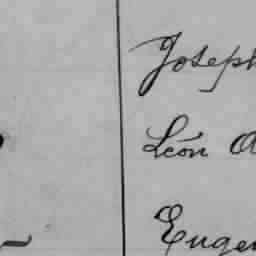 Joseph
Léon
Eugen